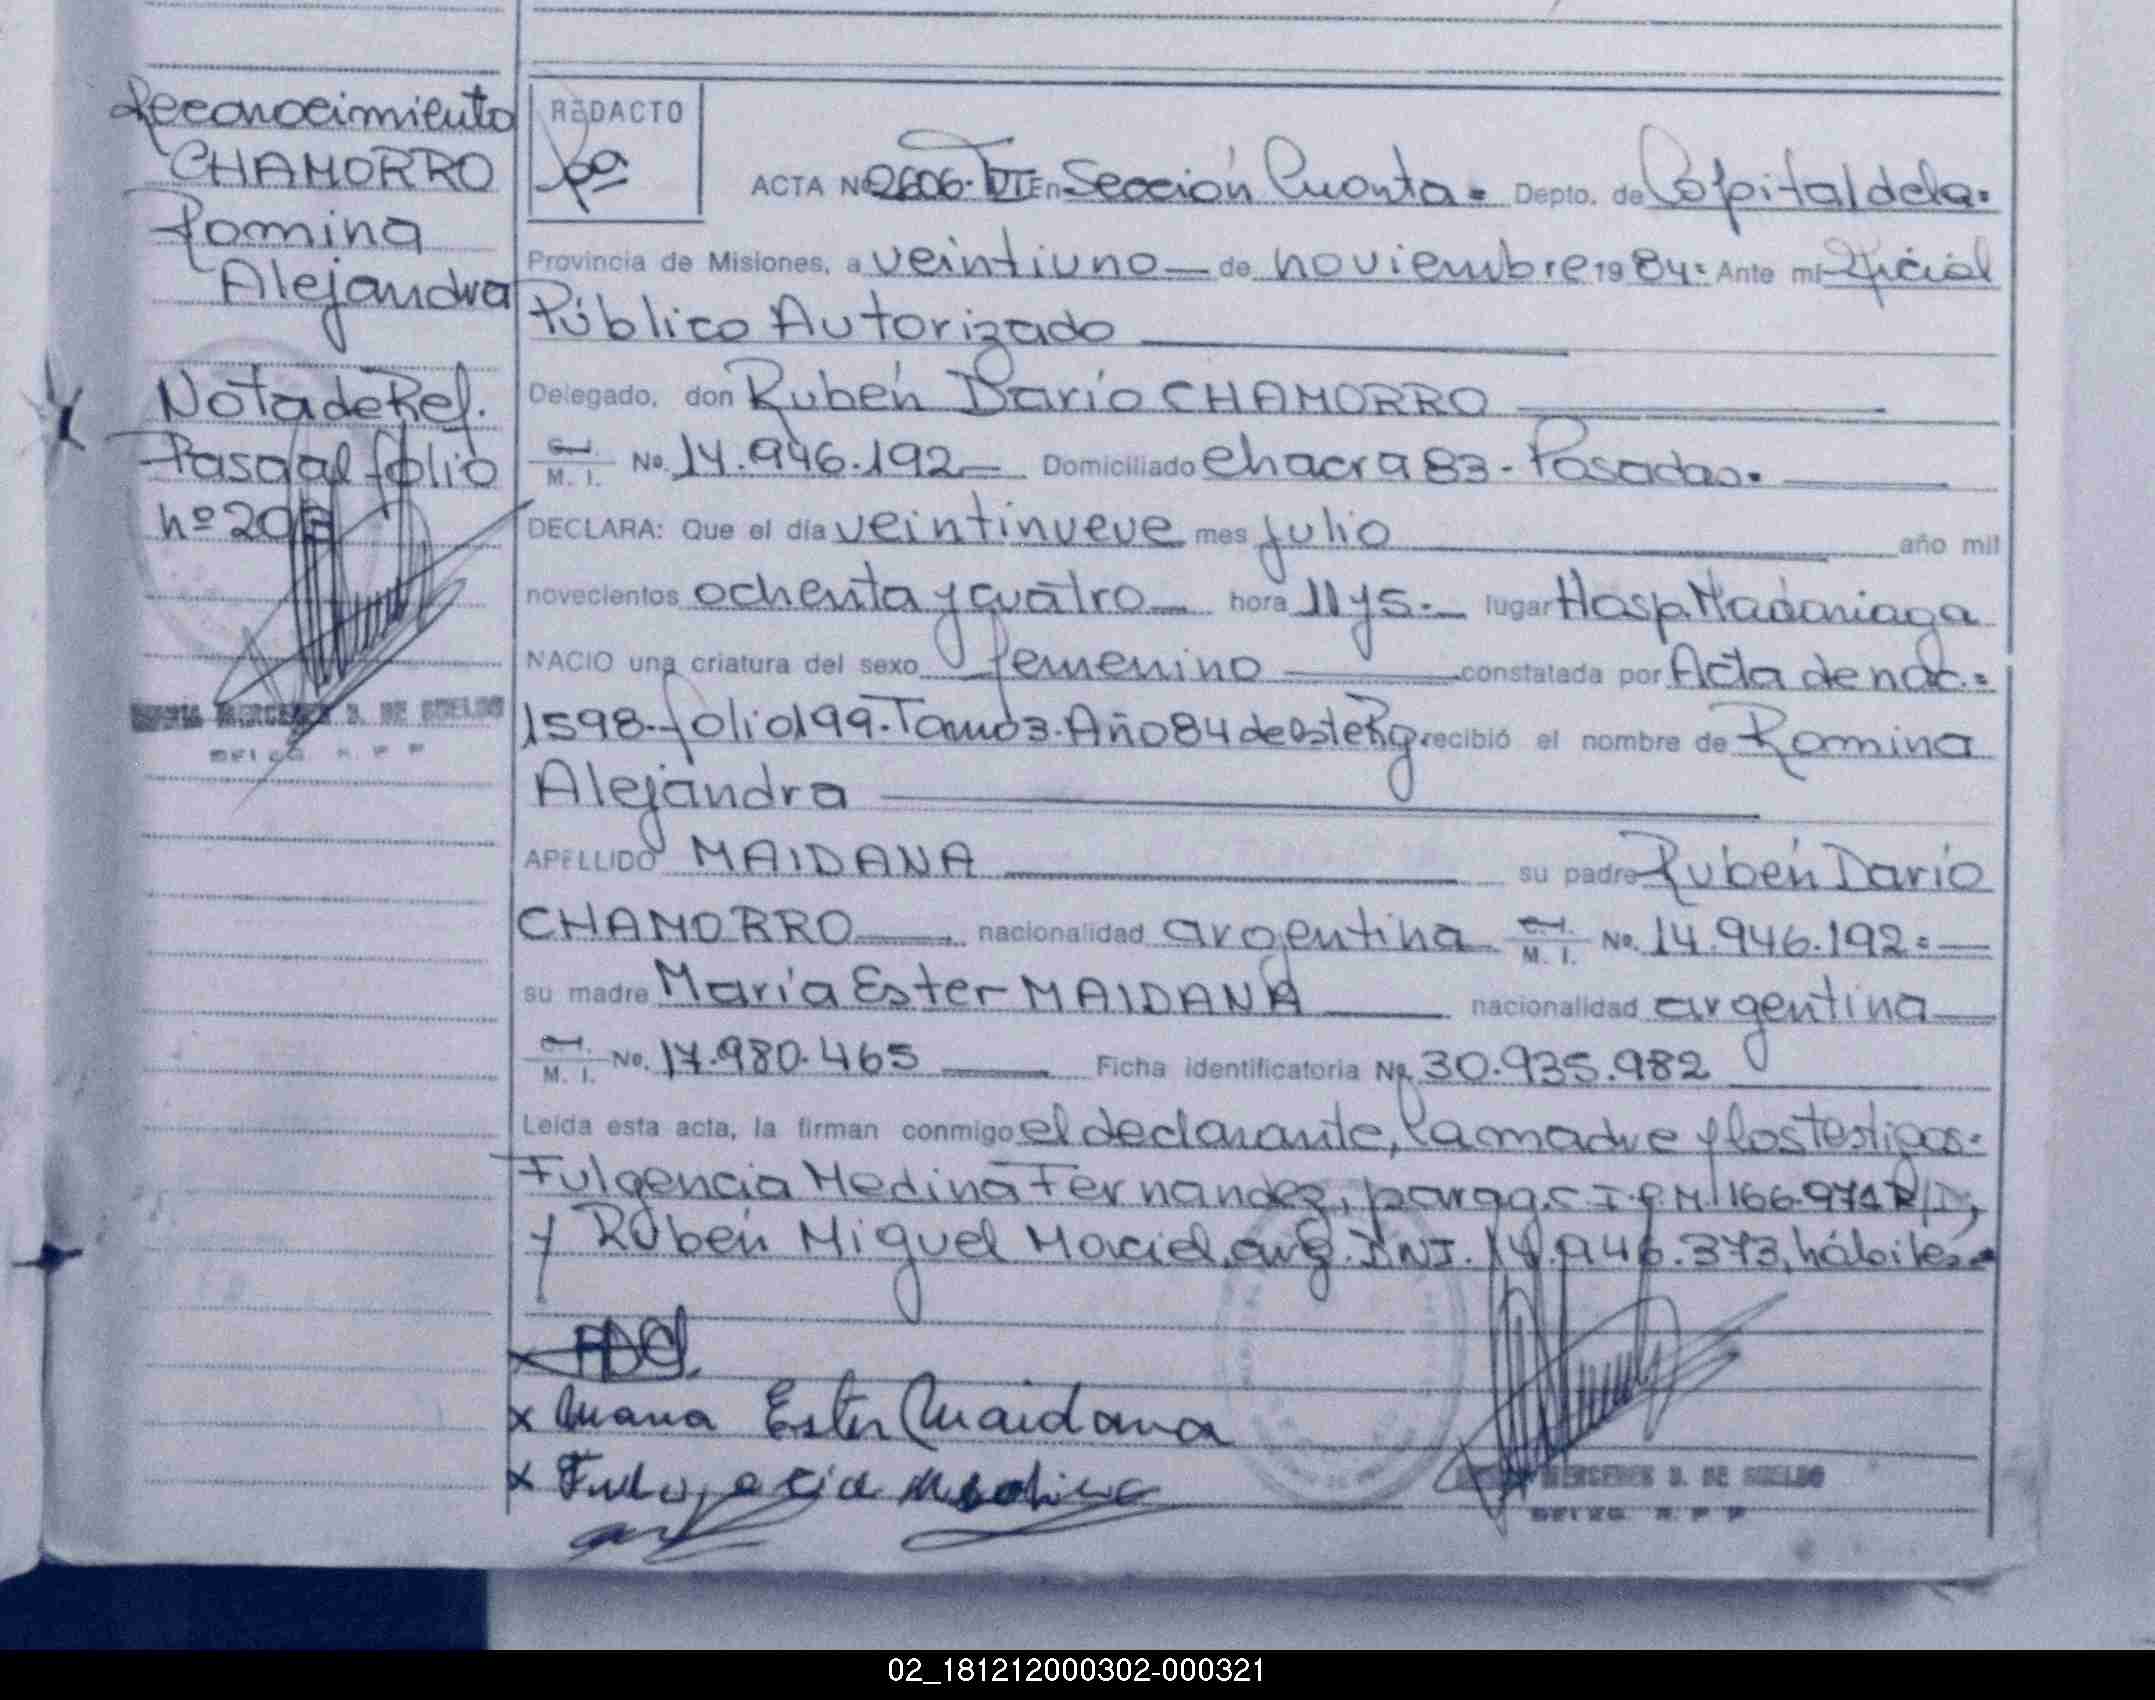 Reconocimiento
CHAMORRO
Romina
Alejandra
Nota de Ref.
Pasa al folio
nº 203
MERCEDES D. DE SUELDO
DELEG. R. P. P
REDACTO
ACTA Nº 2606. TVI En Sección Cuarta. Depto. de Capital de la.
Provincia de Misiones, a veintiuno de noviembre 1984: Ante mi Oficial
Público Autorizado
Delegado, don Rubén Darío CHAMORRO
M. I. No. 14.946.192 Domiciliado Chacra 83 - Posadas.
DECLARA: Que el día veintinueve mes julio año mil
novecientos ochenta y cuatro hora 11 y 5. lugar Hosp. Madariaga
NACIO una criatura del sexo femenino constatada por Acta de nac.
1598-folio 199-Tomo 3-Año 84 de este Rg. recibió el nombre de Romina
Alejandra
APELLIDO MAIDANA su padre Rubén Darío
CHAMORRO nacionalidad argentina M. I. No. 14.946.192
su madre María Ester MAIDANA nacionalidad argentina
M. I. No. 17.980.465 Ficha identificatoria Nº 30.935.982
Leída esta acta, la firman conmigo el declarante, la madre y los testigos:
Fulgencia Medina Fernandez, parag. C.I.P.M. 166.971 R/D,
y Rubén Miguel Maciel, arg. DNI. 14.946.373, hábiles.
x RDCh.
x Maria Ester Maidana
x Fulgencia Medina
MERCEDES D. DE SUELDO
DELEG. R. P. P
02_181212000302-000321